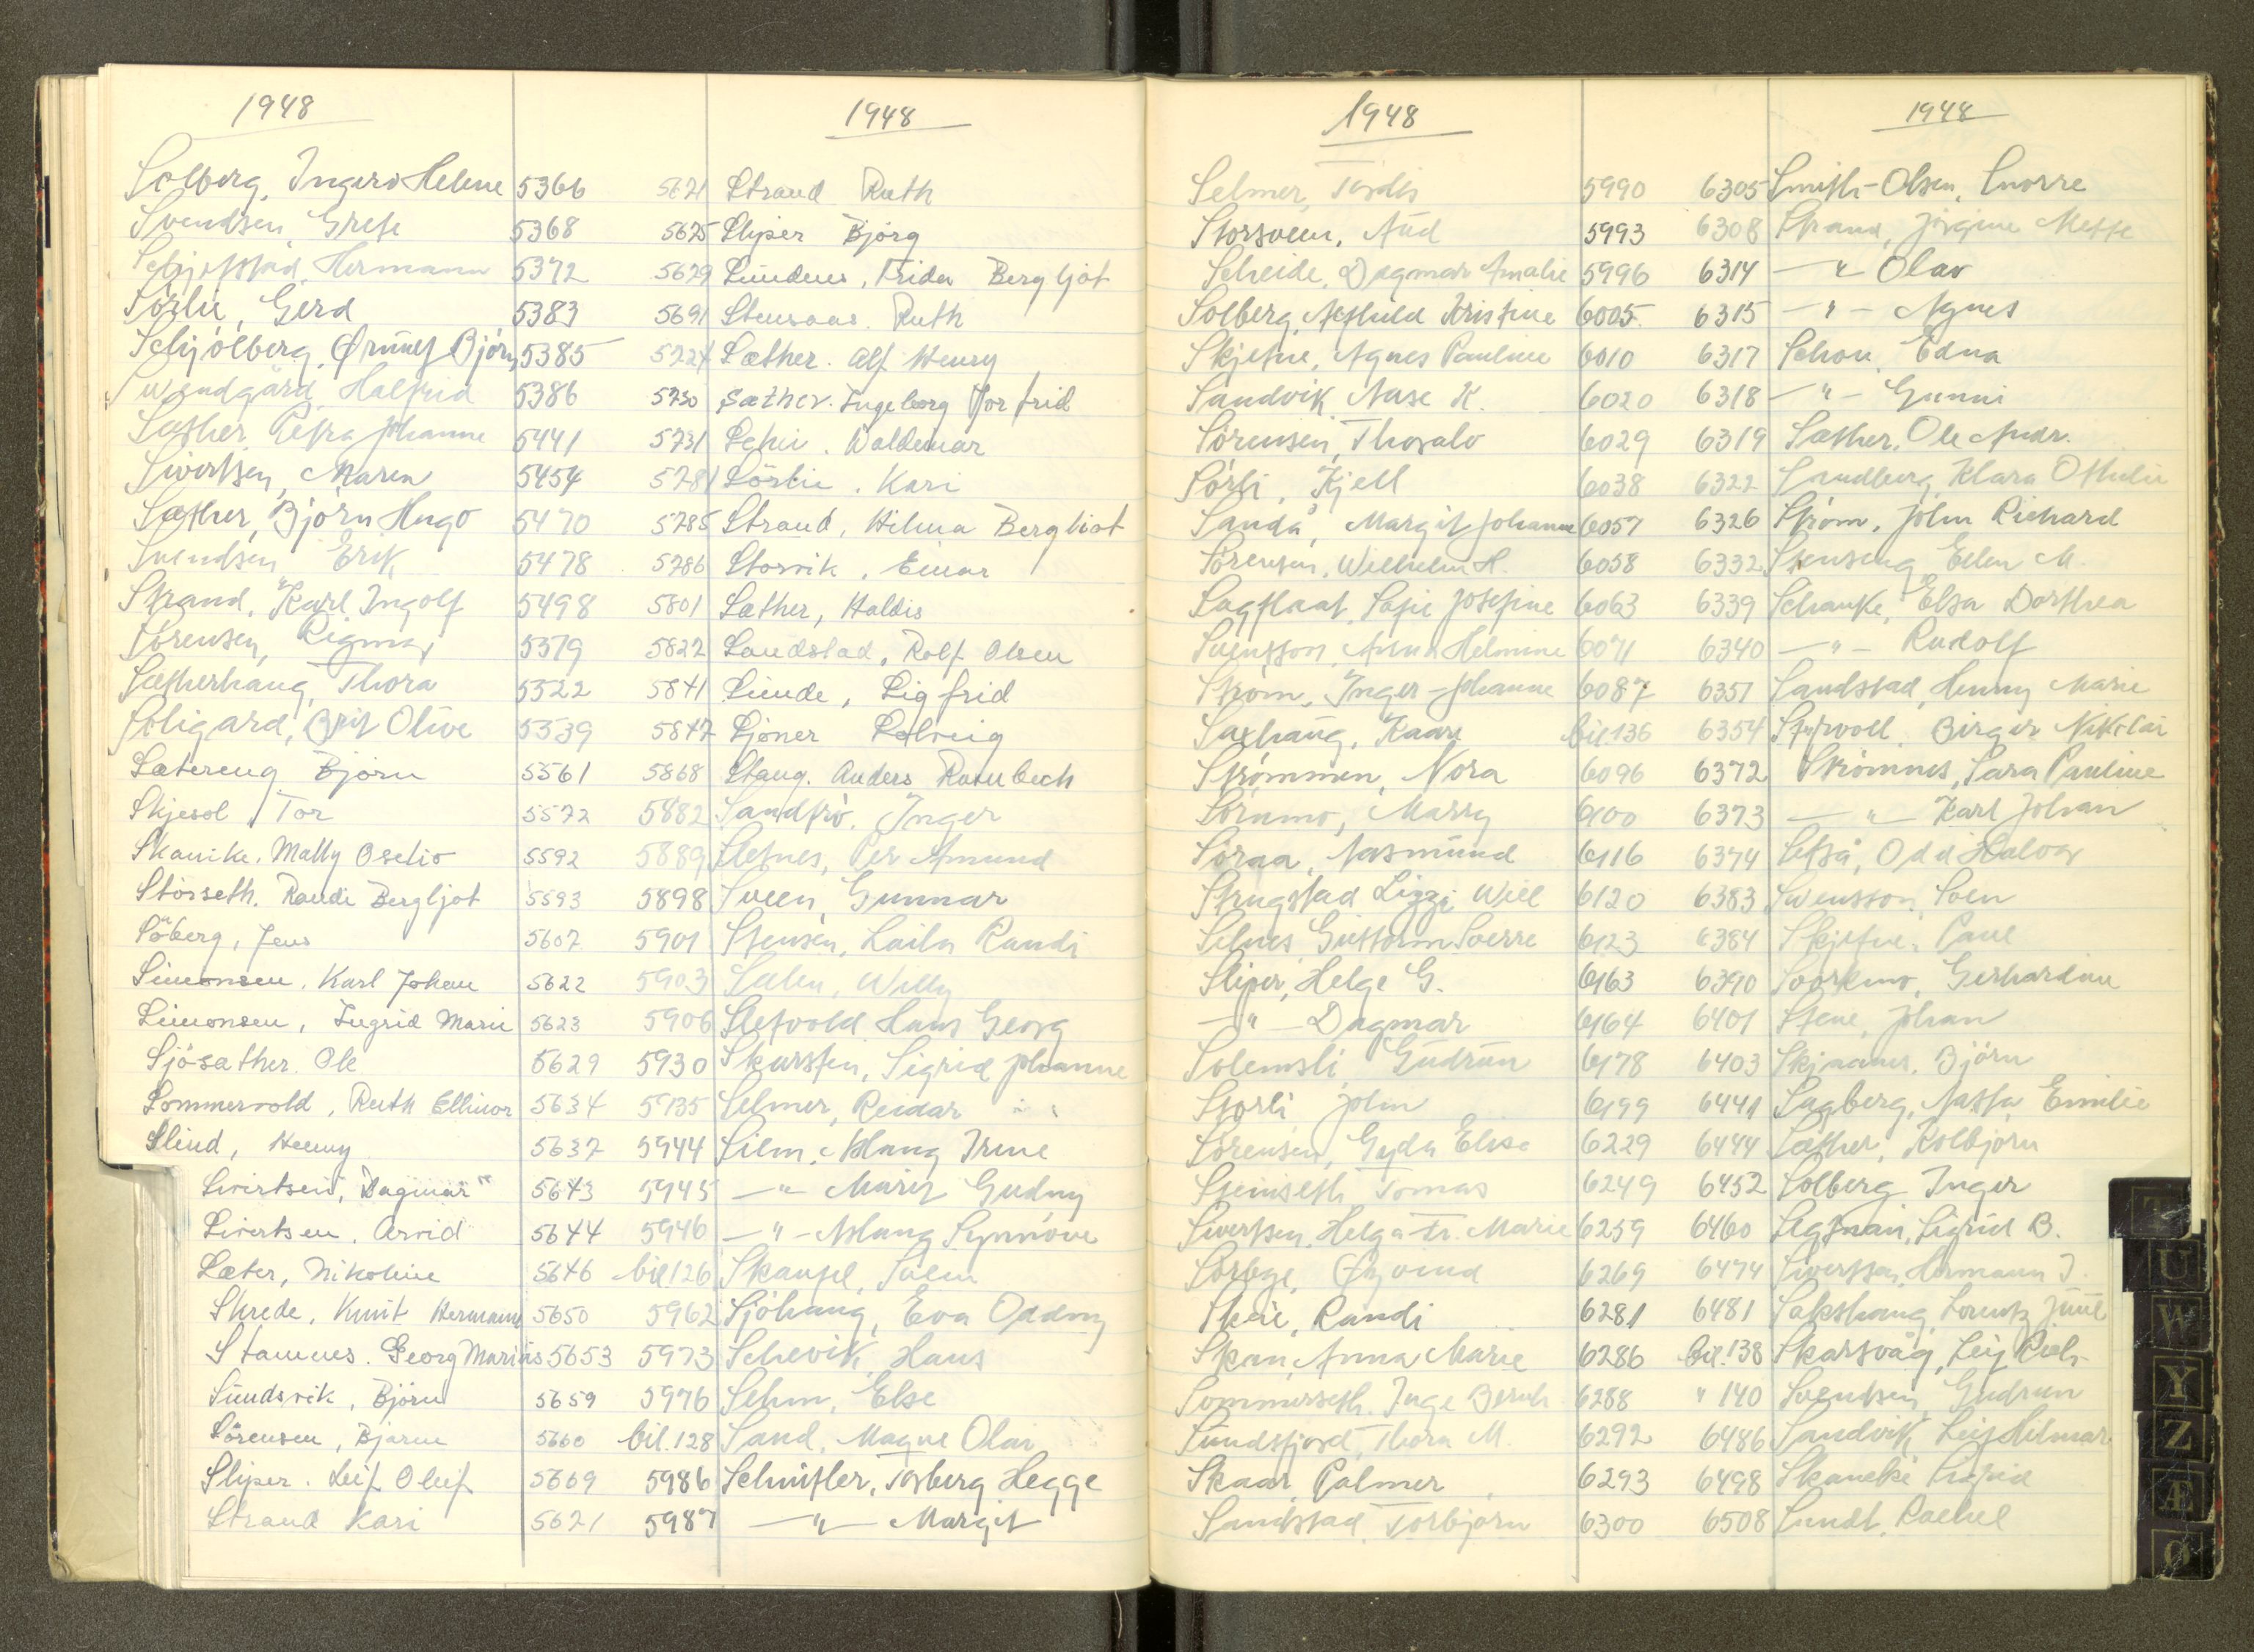 1948
Solberg, Ingerd Helene 5366
Svendsen, Grete 5368
Hermann 5372
Sörlie, Gerd 5383
Schjölberg, Ørnulf Björn 5385
Halfrid 5386
Sæther, Petra Johanne 5441
Sivertsen, Maren 5454
Sæther, Björn Hugo 5470
Svendsen Erik 5478
Strand, Karl Ingolf 5498
Sörensen, Rigmor 5379
Sætherhaug, Thora 5322
Soligard, Brit Olive 5539
Sætereng Björn 5561
Skjesol, Tor 5572
Skanike, Mally Oselio 5592
Störseth. Randi Bergljot 5593
Söberg, Jens 5607
Simonsen, Karl Johan 5622
Simonsen, Ingrid Marie 5623
Sjösæther. Ole 5629
Sommervold, Ruth Ellinor 5634
Slind, Henny 5637
Sivertsen, Dagmar 5643
Sivertsen, Arvid 5644
Sæter, Nikoline 5646
Skrede, Knut Hermann 5650
Stamnes. Georg Marius 5653
Sundsvik, Björn 5659
Sörensen, Bjarne 5660
Sliper. Leif Oleif 5669
Strand Kari 5621
1948
5621 Strand Ruth
5625 Sliper Björg
5629 Frida Bergljot
5691 Stensaas. Ruth
5724 Sæther. Alf Henry
5730 Sæther. Ingeborg Torfrid
5731 Waldemar
5781 Sörlie. Kari
5785 Strand, Hilma Bergliot
5786 Storvik, Einar
5801 Sæther, Haldis
5822 Sandstad, Rolf Olsen
5841 Sunde, Sigfrid
5847 Sjöner Solveig
5868 Stang. Anders Rambech
5882 Sandfrö. Inger
5889 Sletnes, Per Amund
5898 Sveen, Gunnar
5901 Stensen, Laila Randi
5903 Salen, Willy
5906 Sletvold Hans Georg
5930 Skarsten, Sigrid Johanne
5935 Selmer, Reidar
5944 Silem, Aslaug Irene
5945 —"— Marit Gudny
5946 —"— Aslaug Synnöve
bil 126 Skaufel, Svein
5962 Sjöhaug, Eva Oddny
5973 Schevik, Hans
5976 Sehm, Else
bil. 128 Sand, Magne Olav
5986 Schnitler, Torberg Hegge
5987 —"— Margit
1948
Selmer, Tordis 5990
Storsveen, Aud 5993
Scheide, Dagmar Amalie 5996
Solberg, Kristine 6005
Skjefne, Agnes Pauline 6010
Sandvik Aase K. 6020
Sörensen, Thoralv 6029
Sörli, Kjell 6038
Sandå, Margit Johanne 6057
Sörensen, Wilhelm H. 6058
Sagflaat, Sofie Josefine 6063
Svensson, Anna Helmine 6071
Ström, Inger-Johanne 6087
Saxhaug, Kaare bil. 136
Strömmen, Nora 6096
Sörumo, Marry 6100
Söraa, Aasmund 6116
Strugstad Lizzi Will 6120
Selnes Guttorm Sverre 6123
Sliper, Helge G. 6163
—"— Dagmar 6164
Solemsli Gudrun 6178
Storli John 6199
Sörensen, Gyda Elise 6229
Steinseth Tomas 6249
Sivertsen, Helga Fr. Marie 6259
Øyvind 6269
Skeie, Randi 6281
Skau, Anna Marie 6286
Sommerseth. Inge Bernh. 6288
Sundsfjord, Thora M. 6292
Skaar, Palmer 6293
Sandstad, Torbjörn 6300
1948
6305 Smith-Olsen, Snorre
6308 Strand, Jörgine Mette
6314 —"— Olav
6315 —"— Agnes
6317 Schou, Edna
6318 —"— Gunni
6319 Sæther, Ole Andr.
6322 Sandberg, Klara Othilie
6326 Ström, John Richard
6332 Stenseng Ellen M.
6339 Schanke, Elsa Dorthea
6340 —"— Rudolf
6351 Sandstad, Henny Marie
6354 Birger Nikolai
6372 Strömnes, Sara Pauline
6373 —"— Karl Johan
6374 Setså, Odd Halvar
6383 Svensson, Sven
6384 Skjefne, Paul
6390 Gerhardine
6401 Stene, Johan
6403 Skjnanes, Björn
6441 Sagberg, Nasta Emilie
6444 Sæther, Kolbjörn
6452 Solberg Inger
6460 Sigrid B.
6474 Sivertsen, Hermann J.
6481 Sakshaug, Lorentz Juul
bil. 138 Skarsvåg, Leif Rich.
" 140 Svendsen, Gudrun
6486 Sandvik, Leif Hilmar
6498 Skancke Sigrid
6508 Sundt, Rachel
T
U
W
Y
Z
Æ
Ø